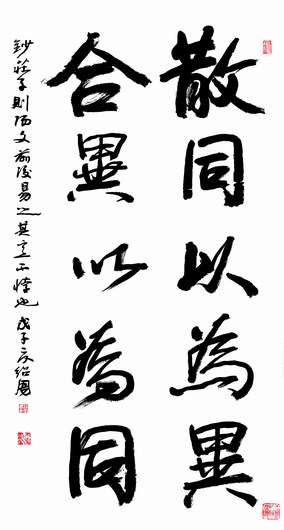 散同以為異
合異以為同
鈔莊子則陽文前後易之其意不悖也 戊子